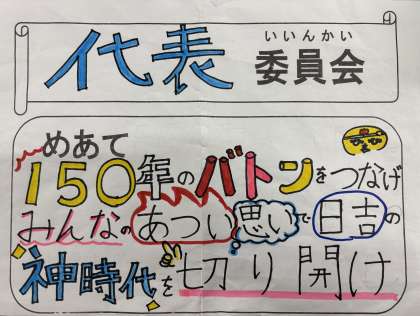 いいんかい
代表委員会
めあて
150年のバトンをつなげ
みんなのあつい思いで日吉の
神時代を切り開け